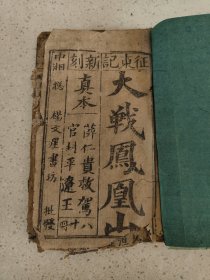 征東記新刻
大戰鳳凰山
真本
薛仁貴救駕八
官封平遼王十
中湘
楊文星書坊
批發